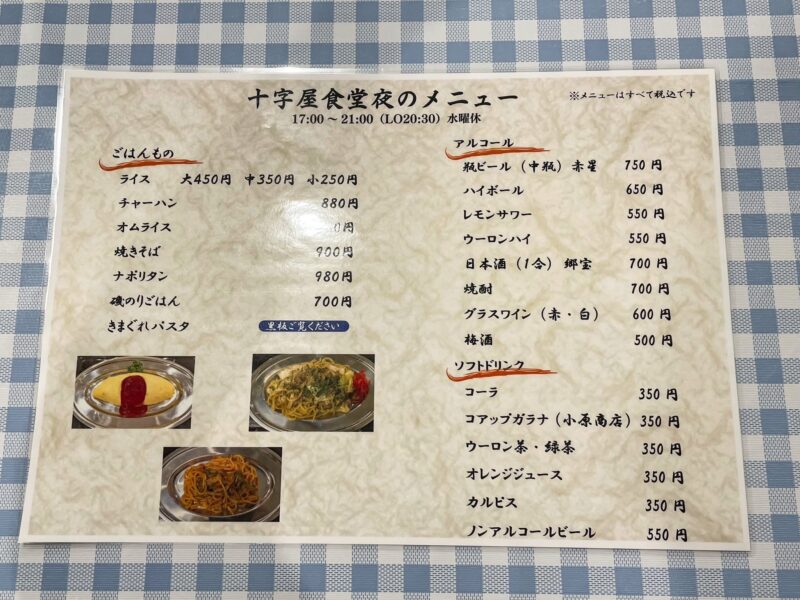 十字屋食堂夜のメニュー
※メニューはすべて税込です
17:00～21:00（LO20:30）水曜休
ごはんもの
ライス 大450円 中350円 小250円
チャーハン 880円
オムライス 0円
焼きそば 900円
ナポリタン 980円
磯のりごはん 700円
きまぐれパスタ 黒板ご覧ください
アルコール
瓶ビール（中瓶）赤星 750円
ハイボール 650円
レモンサワー 550円
ウーロンハイ 550円
日本酒（1合）郷宝 700円
焼酎 700円
グラスワイン（赤・白） 600円
梅酒 500円
ソフトドリンク
コーラ 350円
コアップガラナ（小原商店）350円
ウーロン茶・緑茶 350円
オレンジジュース 350円
カルピス 350円
ノンアルコールビール 550円